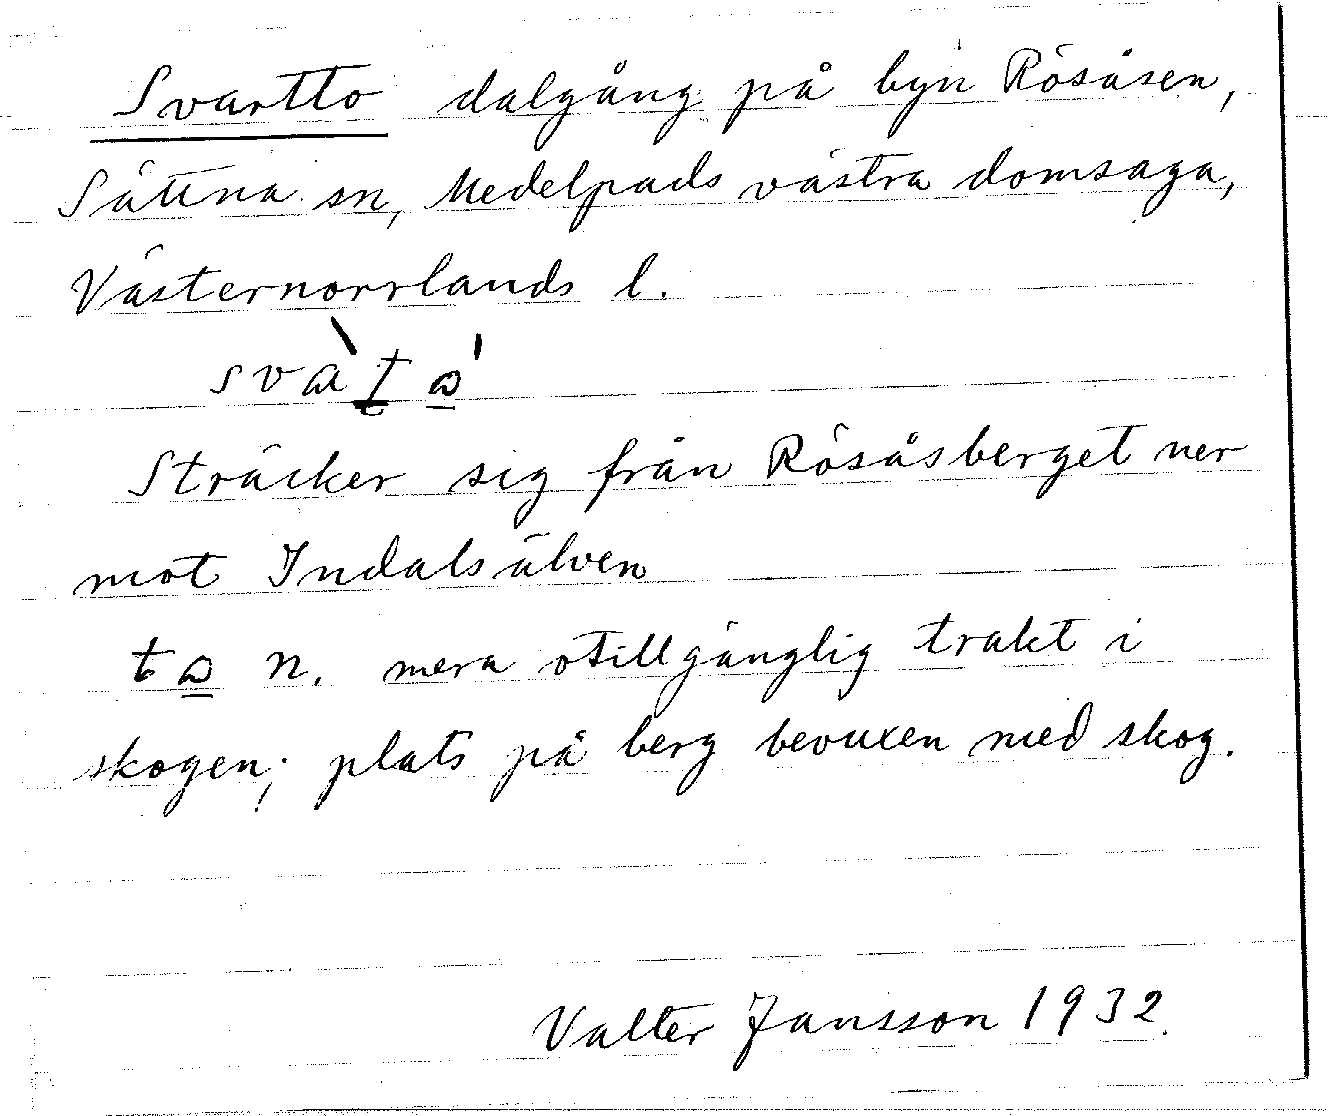 Svartto dalgång på byn Rösåsen,
Sättna sn, Medelpads västra domsaga,
Västernorrlands l.
Sträcker sig från Rösåsberget ner
mot Indalsälven
n. mera otillgänglig trakt i
skogen; plats på berg bevuxen med skog.
Valter Jansson 1932.